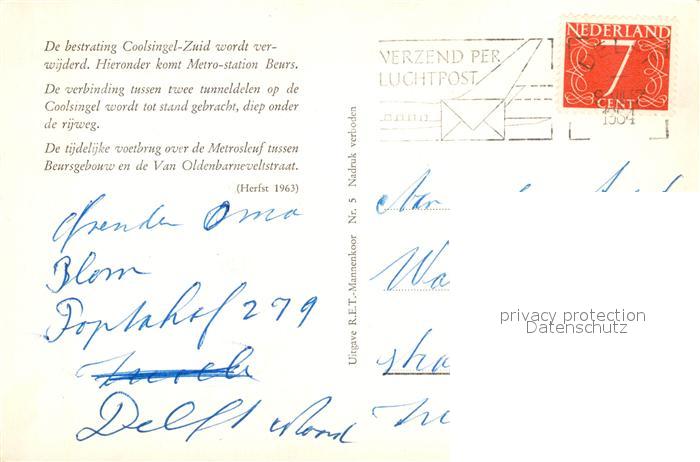 De bestrating Coolsingel-Zuid wordt ver-
wijderd. Hieronder komt Metro-station Beurs.
De verbinding tussen twee tunneldelen op de
Coolsingel wordt tot stand gebracht, diep onder
de rijweg.
De tijdelijke voetbrug over de Metrosleuf tussen
Beursgebouw en de Van Oldenbarneveltstraat.
(Herfst 1963)
Oma
Blom
Foptahof 279
Delft Noord
Uitgave R.E.T.-Mannenkoor Nr. 5 Nadruk verboden
VERZEND PER
LUCHTPOST
NEDERLAND
7
CENT
1964
Aan
Wa
stra
privacy protection
Datenschutz